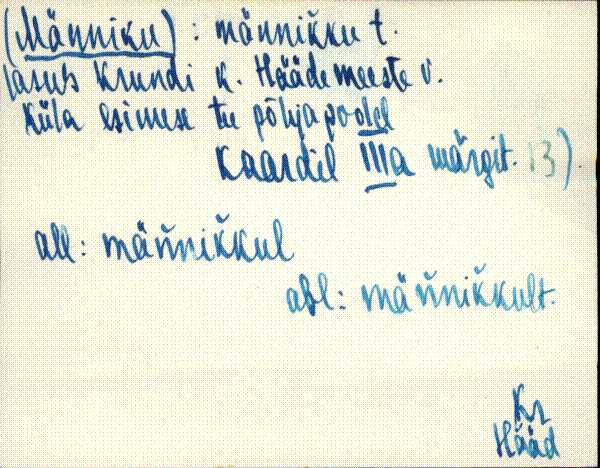 (Männiku) : männikku t.
(asub Krundi k. Häädemeeste v.
küla esimese tee põhjapoolel
Kaardil IIIa märgit. 13).
all: män̆nik̆kul
abl: män̆nik̆kult.
Kr
Hääd